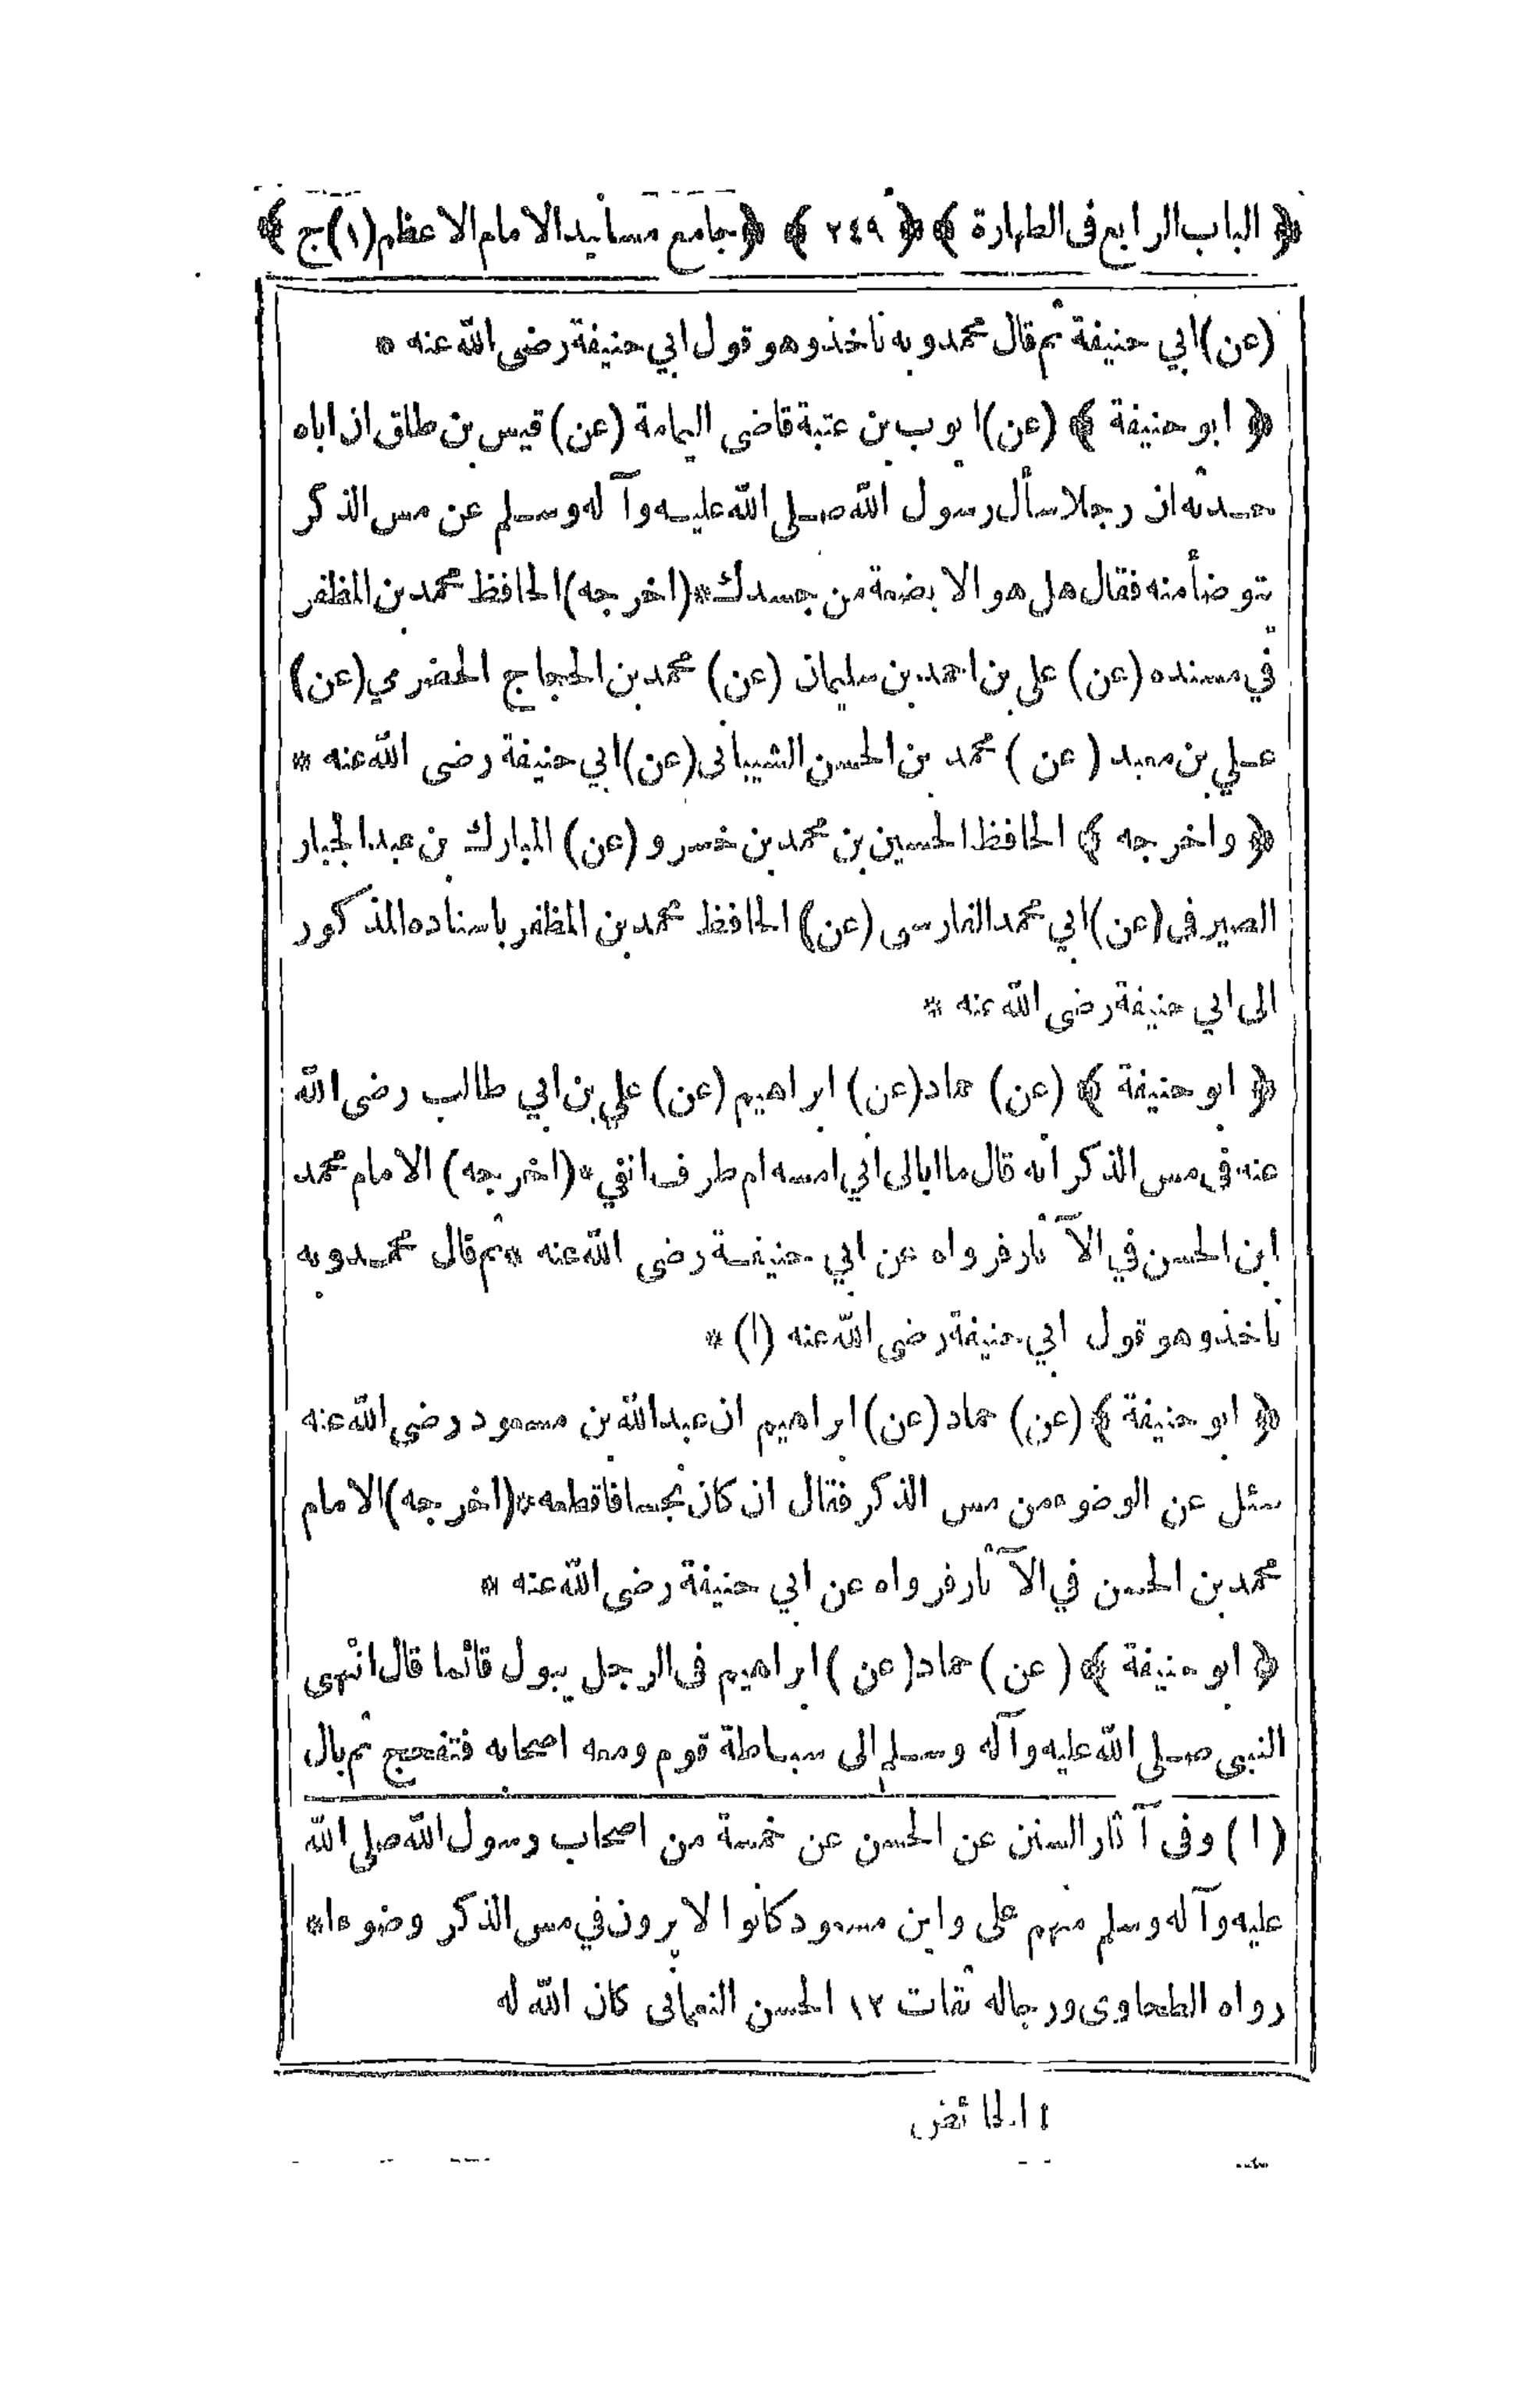 ﴿ الباب الرابع فى الطهارة ﴾ ﴿ ٢٤٩ ﴾ ﴿ جامع مسانيد الامام الاعظم (١) ج ﴾
(عن) ابي حنيفة ثم قال محمد وبه ناخذ وهو قول ابي حنيفة رضى الله عنه *
﴿ ابو حنيفة ﴾ (عن) ايوب بن عتبة قاضى اليمامة (عن) قيس بن طلق ان اباه
حدثه ان رجلا سأل رسول الله صلى الله عليه وآله وسلم عن مس الذكر
يتوضأ منه فقال هل هو الا بضعة من جسدك * (اخرجه) الحافظ محمد بن المظفر
في مسنده (عن) علي بن احمد بن سليمان (عن) محمد بن الحجاج الحضرمي (عن)
علي بن معبد (عن) محمد بن الحسن الشيبانى (عن) ابي حنيفة رضى الله عنه *
﴿ واخرجه ﴾ الحافظ الحسين بن محمد بن خسرو (عن) المبارك بن عبد الجبار
الصيرفى (عن) ابي محمد الفارسى (عن) الحافظ محمد بن المظفر باسناده المذكور
الى ابي حنيفة رضى الله عنه *
﴿ ابو حنيفة ﴾ (عن) حماد (عن) ابراهيم (عن) علي بن ابي طالب رضى الله
عنه فى مس الذكر انه قال ما ابالى اني امسه ام طرف انفي * (اخرجه) الامام محمد
ابن الحسن في الآثار فرواه عن ابي حنيفة رضى الله عنه * ثم قال محمد وبه
ناخذ وهو قول ابي حنيفة رضى الله عنه (١) *
﴿ ابو حنيفة ﴾ (عن) حماد (عن) ابراهيم ان عبد الله بن مسعود رضى الله عنه
سئل عن الوضوء من مس الذكر فقال ان كان نجسا فاقطعه * (اخرجه) الامام
محمد بن الحسن في الآثار فرواه عن ابي حنيفة رضى الله عنه *
﴿ ابو حنيفة ﴾ (عن) حماد (عن) ابراهيم فى الرجل يبول قائما قال انتهى
النبى صلى الله عليه وآله وسلم الى سباطة قوم ومعه اصحابه فتفحج ثم بال
(١) وفى آثار السنن عن الحسن عن خمسة من اصحاب رسول الله صلى الله
عليه وآله وسلم منهم على وابن مسعود كانوا لا يرون في مس الذكر وضوءا *
رواه الطحاوى ورجاله ثقات ١٢ الحسن النعمانى كان الله له
١ الحائض